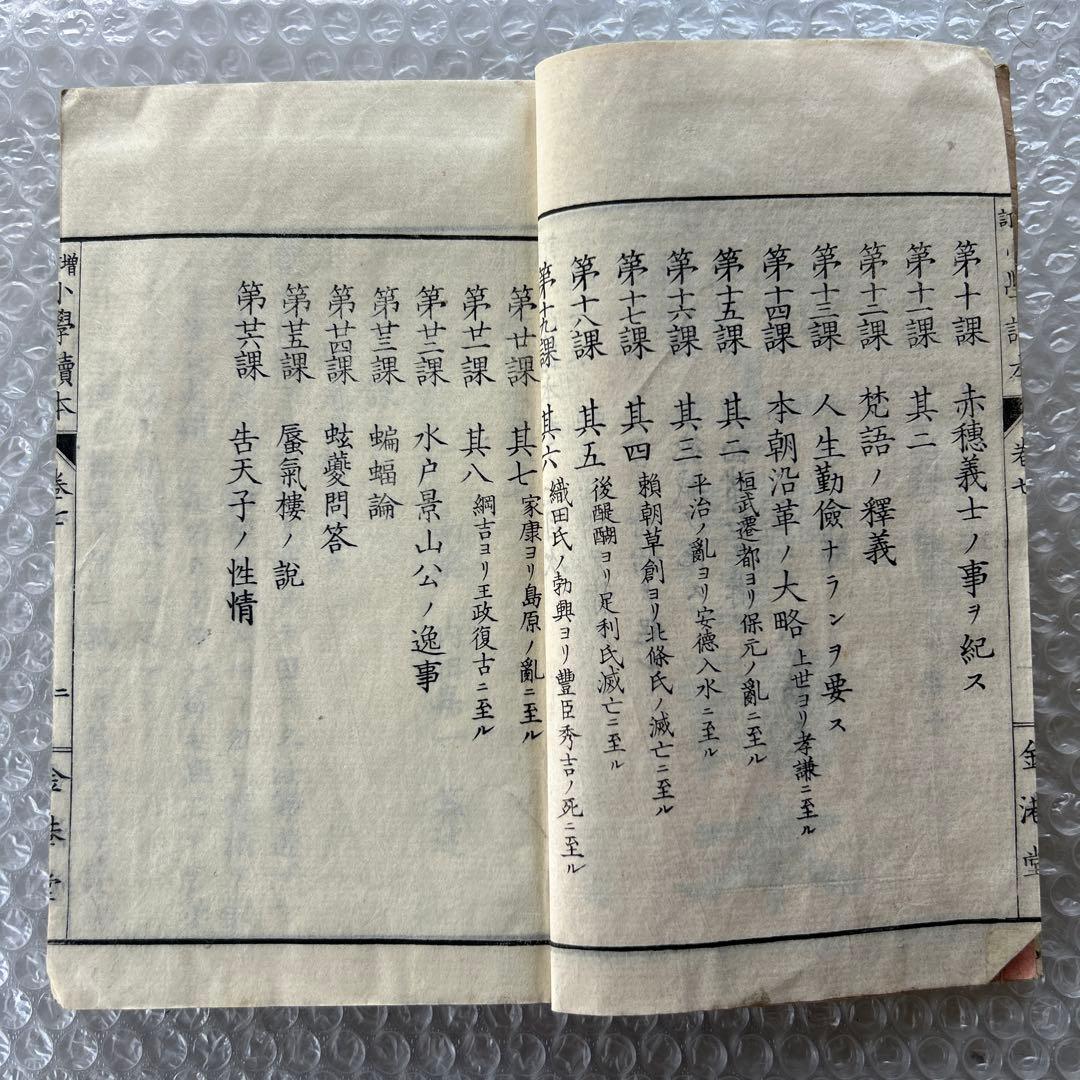 第十課 赤穗義士ノ事ヲ紀ス
第十一課 其二
第十二課 梵語ノ釋義
第十三課 人生勤儉ナランヲ要ス
第十四課 本朝沿革ノ大略 上世ヨリ孝謙ニ至ル
第十五課 其二 桓武遷都ヨリ保元ノ亂ニ至ル
第十六課 其三 平治ノ亂ヨリ安德入水ニ至ル
第十七課 其四 賴朝草創ヨリ北條氏ノ滅亡ニ至ル
第十八課 其五 後醍醐ヨリ足利氏滅亡ニ至ル
第十九課 其六 織田氏ノ勃興ヨリ豐臣秀吉ノ死ニ至ル
第廿課 其七 家康ヨリ島原ノ亂ニ至ル
第廿一課 其八 綱吉ヨリ王政復古ニ至ル
第廿二課 水戸景山公ノ逸事
第廿三課 蝙蝠論
第廿四課 蚿夔問答
第廿五課 蜃氣樓ノ說
第廿六課 告天子ノ性情
增小學讀本 卷七 二 金港堂
訂小學讀本 卷七 金港堂